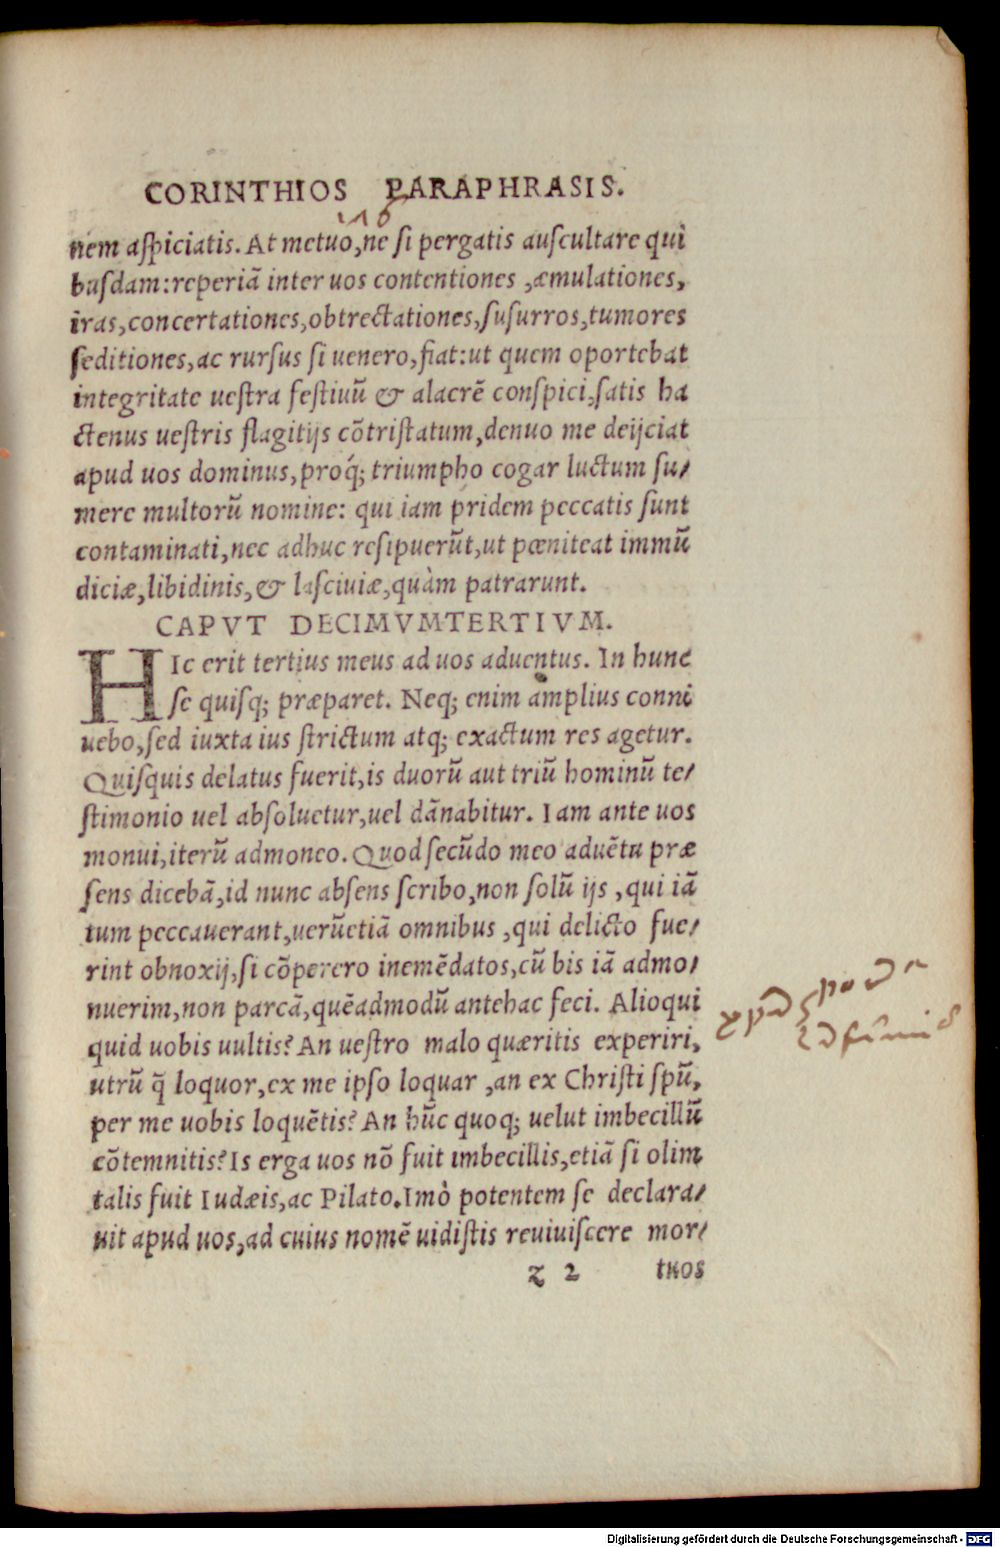 CORINTHIOS PARAPHRASIS.
nem aſpiciatis. At metuo, ne ſi pergatis auſcultare qui
buſdam: reperiã inter uos contentiones, æmulationes,
iras, concertationes, obtrectationes, ſuſurros, tumores
ſeditiones, ac rurſus ſi uenero, fiat: ut quem oportebat
integritate ueſtra feſtiuũ & alacrẽ conſpici, ſatis ha
ctenus ueſtris flagitijs cõtriſtatum, denuo me deijciat
apud uos dominus, proq́; triumpho cogar luctum ſu/
mere multorũ nomine: qui iam pridem peccatis ſunt
contaminati, nec adhuc reſipuerũt, ut pœniteat immũ
diciæ, libidinis, & laſciuiæ, quàm patrarunt.
CAPVT DECIMVMTERTIVM.
HIc erit tertius meus ad uos aduentus. In hunc
ſe quiſq; præparet. Neq; enim amplius conni
uebo, ſed iuxta ius ſtrictum atq; exactum res agetur.
Quiſquis delatus fuerit, is duorũ aut triũ hominũ te/
ſtimonio uel abſoluetur, uel dãnabitur. Iam ante uos
monui, iterũ admoneo. Quod ſecũdo meo aduẽtu præ
ſens dicebã, id nunc abſens ſcribo, non ſolũ ijs, qui iã
tum peccauerant, uerũetiã omnibus, qui delicto fue/
rint obnoxij, ſi cõperero inemẽdatos, cũ bis iã admo/
nuerim, non parcã, quẽadmodũ antehac feci. Alioqui
quid uobis uultis? An ueſtro malo quæritis experiri,
utrũ q̃ loquor, ex me ipſo loquar, an ex Chriſti ſpũ,
per me uobis loquẽtis? An hũc quoq; uelut imbecillũ
cõtemnitis? Is erga uos nõ fuit imbecillis, etiã ſi olim
talis fuit Iudæis, ac Pilato. Imò potentem ſe declara/
uit apud uos, ad cuius nomẽ uidiſtis reuiuiſcere mor/
z 2 tuos
Digitalisierung gefördert durch die Deutsche Forschungsgemeinschaft - DFG